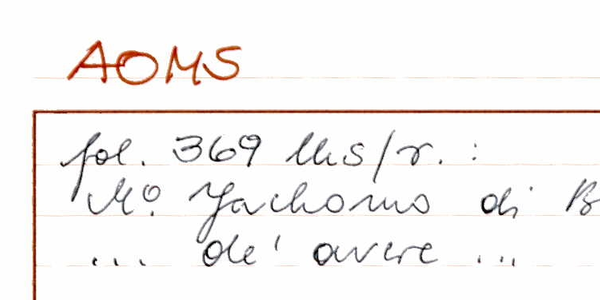 AOMS
fol. 369 lhs/r. :
Mo. Jachomo di B
... de' avere ...